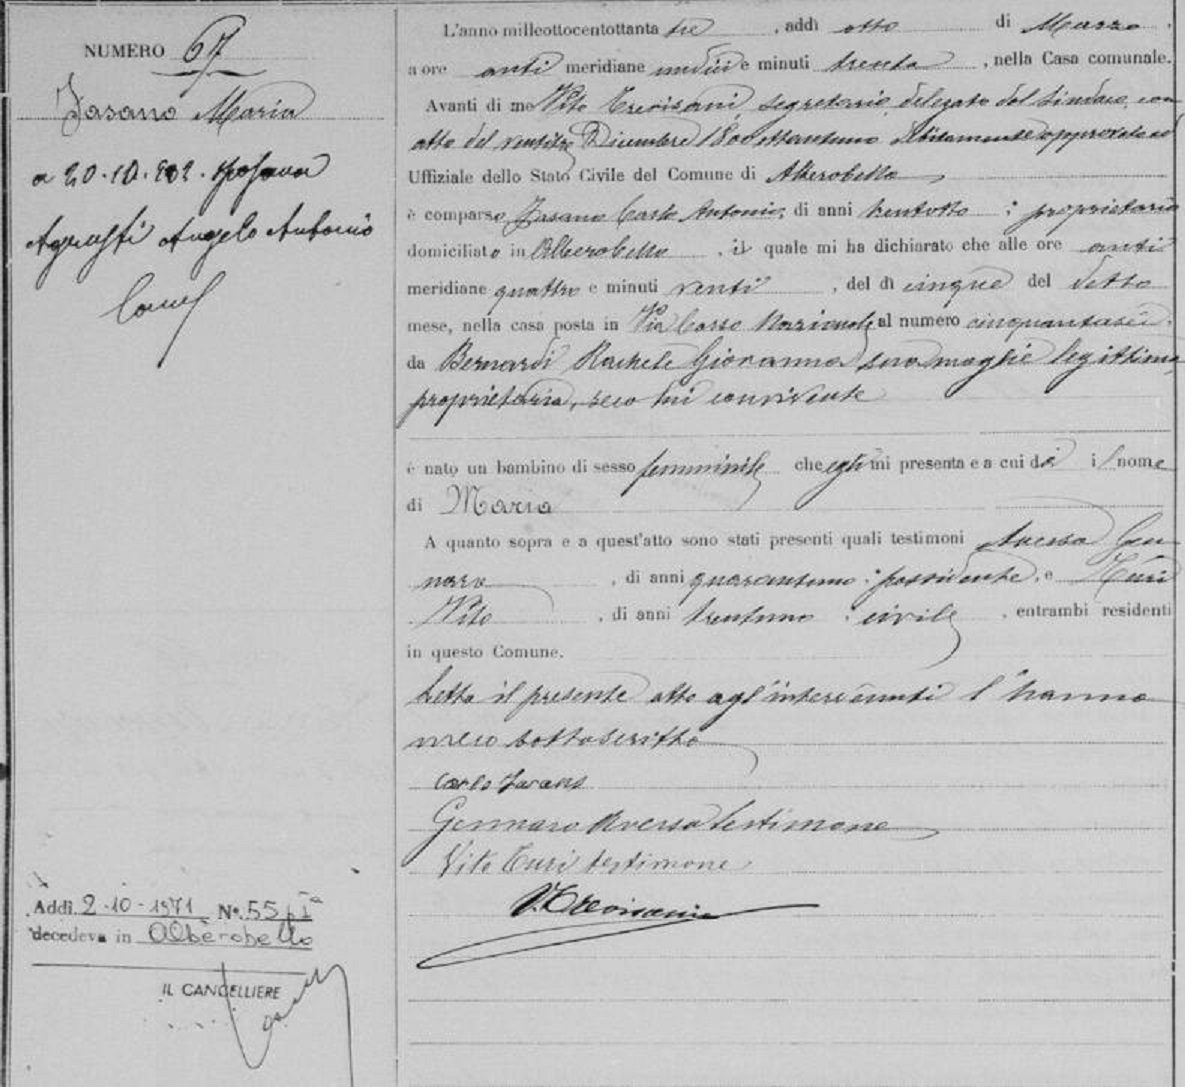 NUMERO 67
Fasano Maria
a 20.10.902. sposava
Agrusti Angelo Antonio
L'anno milleottocentottanta tre, addì otto di Marzo,
a ore anti meridiane undici e minuti trenta, nella Casa comunale.
Avanti di me Vito Trevisani segretario delegato dal Sindaco con
atto del ventitre Dicembre 1800 ottantuno debitamente approvato ed
Uffiziale dello Stato Civile del Comune di Alberobello
è comparso Fasano Carlo Antonio, di anni trentotto, proprietario
domiciliato in Alberobello, il quale mi ha dichiarato che alle ore anti
meridiane quattro e minuti venti, del dì cinque del detto
mese, nella casa posta in Via Corso Nazionale al numero cinquantasei,
da Bernardi Rachele Giovanna sua moglie legittima,
proprietaria, seco lui convivente
è nato un bambino di sesso femminile che egli mi presenta e a cui dà il nome
di Maria
A quanto sopra e a quest'atto sono stati presenti quali testimoni Aversa Gen
naro, di anni quarantuno, possidente, e Turi
Vito, di anni trentuno, civile, entrambi residenti
in questo Comune.
Letto il presente atto agl'intervenuti l'hanno
meco sottoscritto
Carlo Fasano
Gennaro Aversa testimone
Vito Turi testimone
V. Trevisani
Addì 2-10-1971 N. 55 p I
decedeva in Alberobello
IL CANCELLIERE